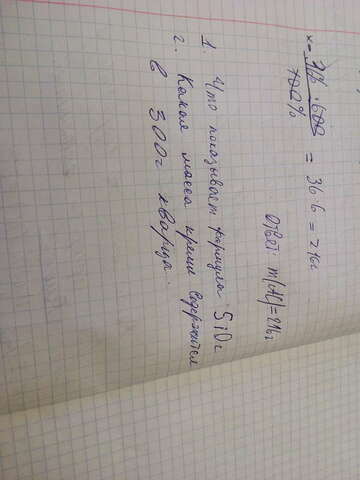 x = 36% · 600
100%
= 36 · 6 = 216г
Ответ: m(Al)=216г
1. Что показывает формула SiO2
2. Какая масса кремн. содержится
в 300г кварца.